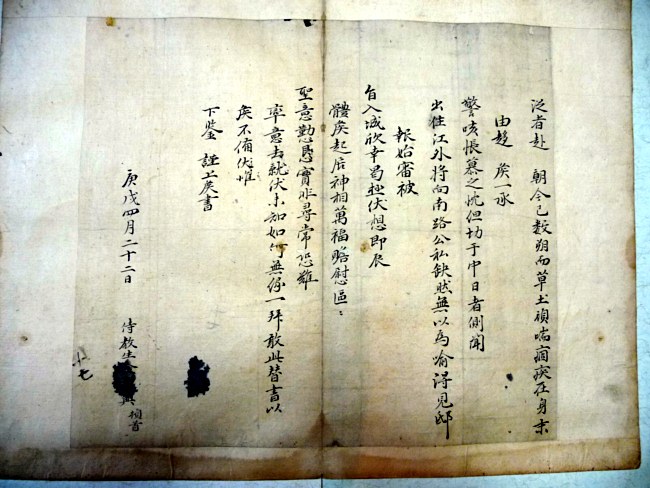 泛者赴 朝今已數朔而草土頑喘痼疾在身末
由趍 候一承
警咳悵慕之忱但切于中日者側聞
出往江外將向南路公私缺然無以為喻得見邸
報始審被
旨入城欣幸曷極伏想即辰
體候起居神相萬福瞻慰區〻
聖意勤懇實非尋常恐難
率意去就伏未知如何無緣一拜敢此替書以
候不備伏惟
下鑒 謹上候書
庚戌四月二十二日
侍教生 興 頓首
十七